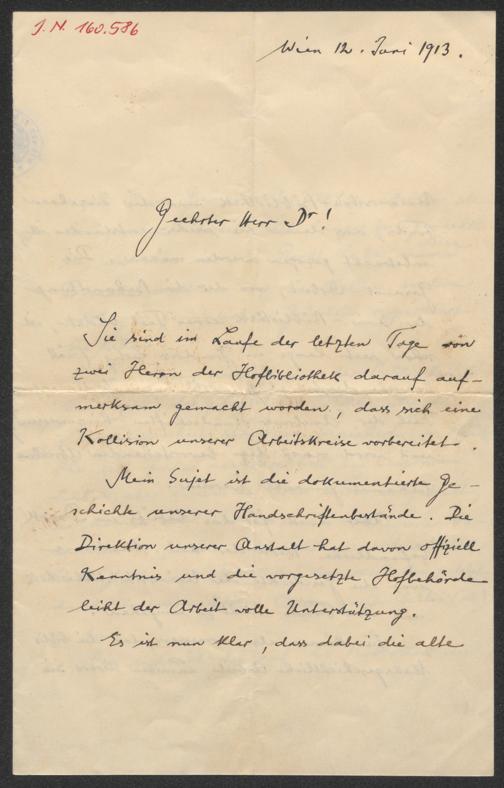 J. N. 160.586
Wien 12. Juni 1913.
Geehrter Herr Dr!
Sie sind im Laufe der letzten Tage von
zwei Herrn der Hofbibliothek darauf auf-
merksam gemacht worden, dass sich eine
Kollision unserer Arbeitskreise vorbereitet.
Mein Sujet ist die dokumentierte Ge-
schichte unserer Handschriftenbestände. Die
Direktion unserer Anstalt hat davon offiziell
Kenntnis und die vorgesetzte Hofbehörde
leiht der Arbeit volle Unterstützung.
Es ist nun klar, dass dabei die alte